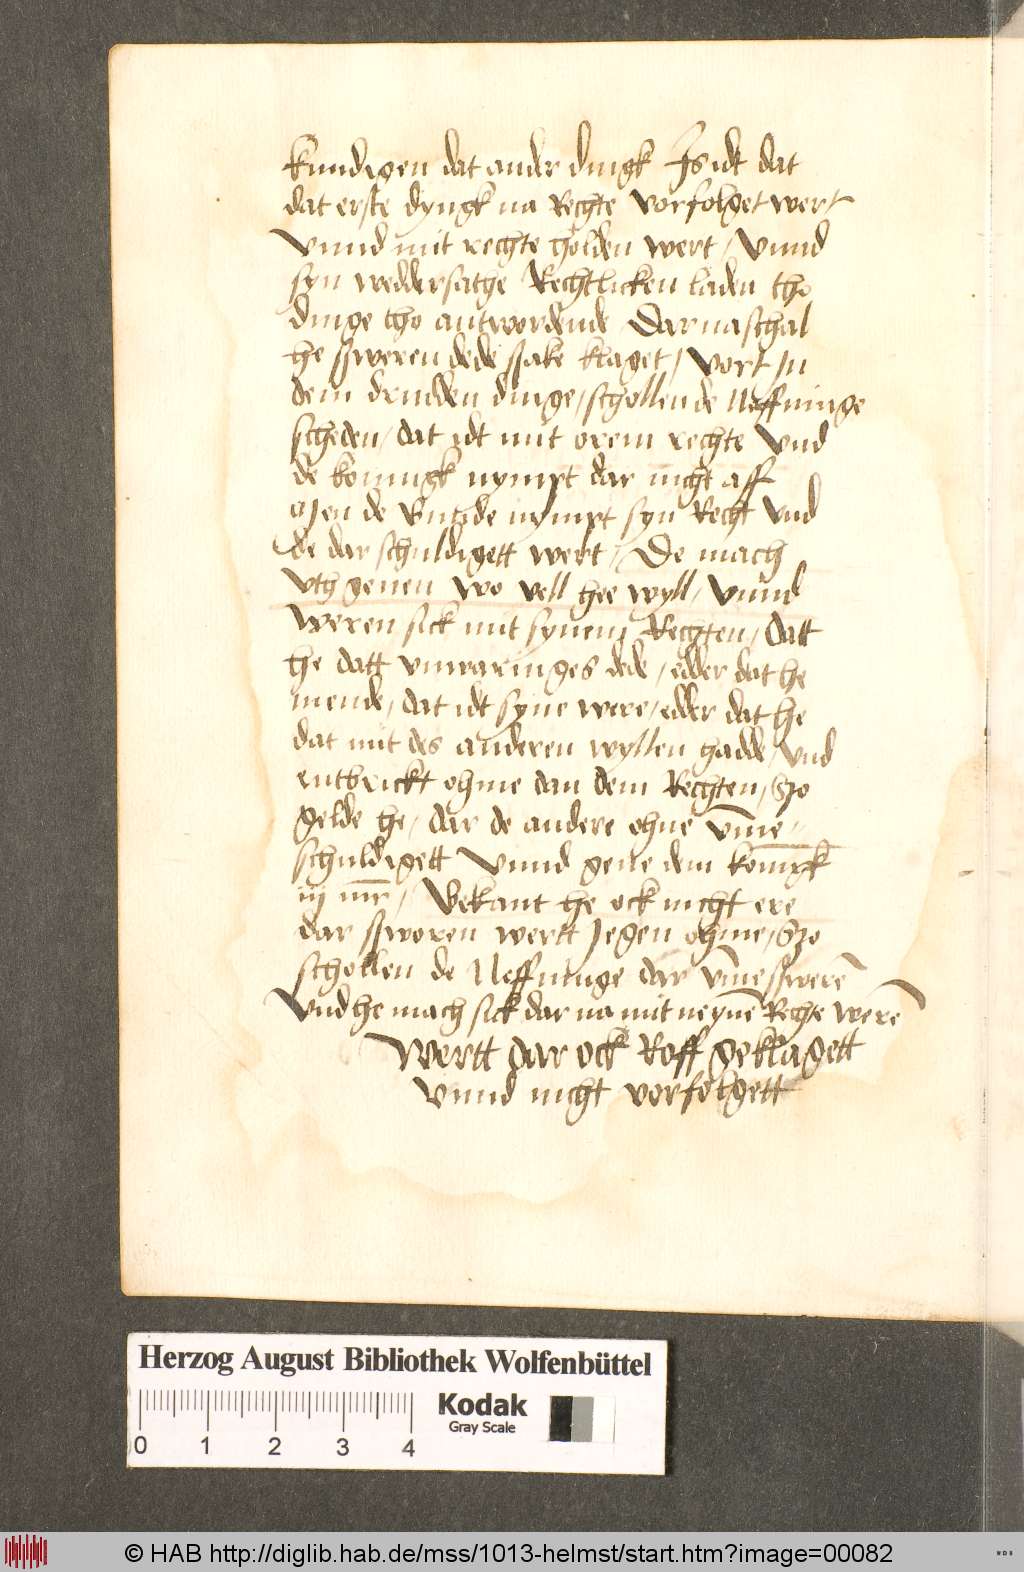 kundigen dat ander dingk Js idt dat
dat erste dyngk na Rechte vorfolget wert
Vnnd mit rechte holden wert / Vnnd
syn weddersathe Rechtlicken laden tho
dinge tho antwordende Darna schal
he ssweren dede ssake klaget / vort Jn
dem drudden dinge / schollen de Neffninge
scheden / dat idt mit orem rechte Vnd
de konnigk nympt dar nicht aff
Men de Bunde nympt syn Recht Vnd
de dar schuldigett wert / De mach
vth genen wo vell hee wyll / Vnnd
weren sick mit synem Rechten / datt
he datt vnwaringes dede / edder dat he
mende / dat idt syne were / edder dat he
dat mit des anderen wyllen hadde / vnd
entbrickt ohme dan dem Rechten / Szo
gelde he / dar de andere ohne vm̄e
schuldigett Vnnd geue dem konigk
iij mr̄ / Bekant he ock nicht ere
dar ssworen wertt Jegen ohme / Szo
schollen de Neffninge dar vm̄e sswerē
Vnd he mach sick dar na mit neynē Rechte werē
Wertt dar ock Roff geklagett
vnnd nicht vorfolgett
Herzog August Bibliothek Wolfenbüttel
Kodak
Gray Scale
0 1 2 3 4
© HAB http://diglib.hab.de/mss/1013-helmst/start.htm?image=00082